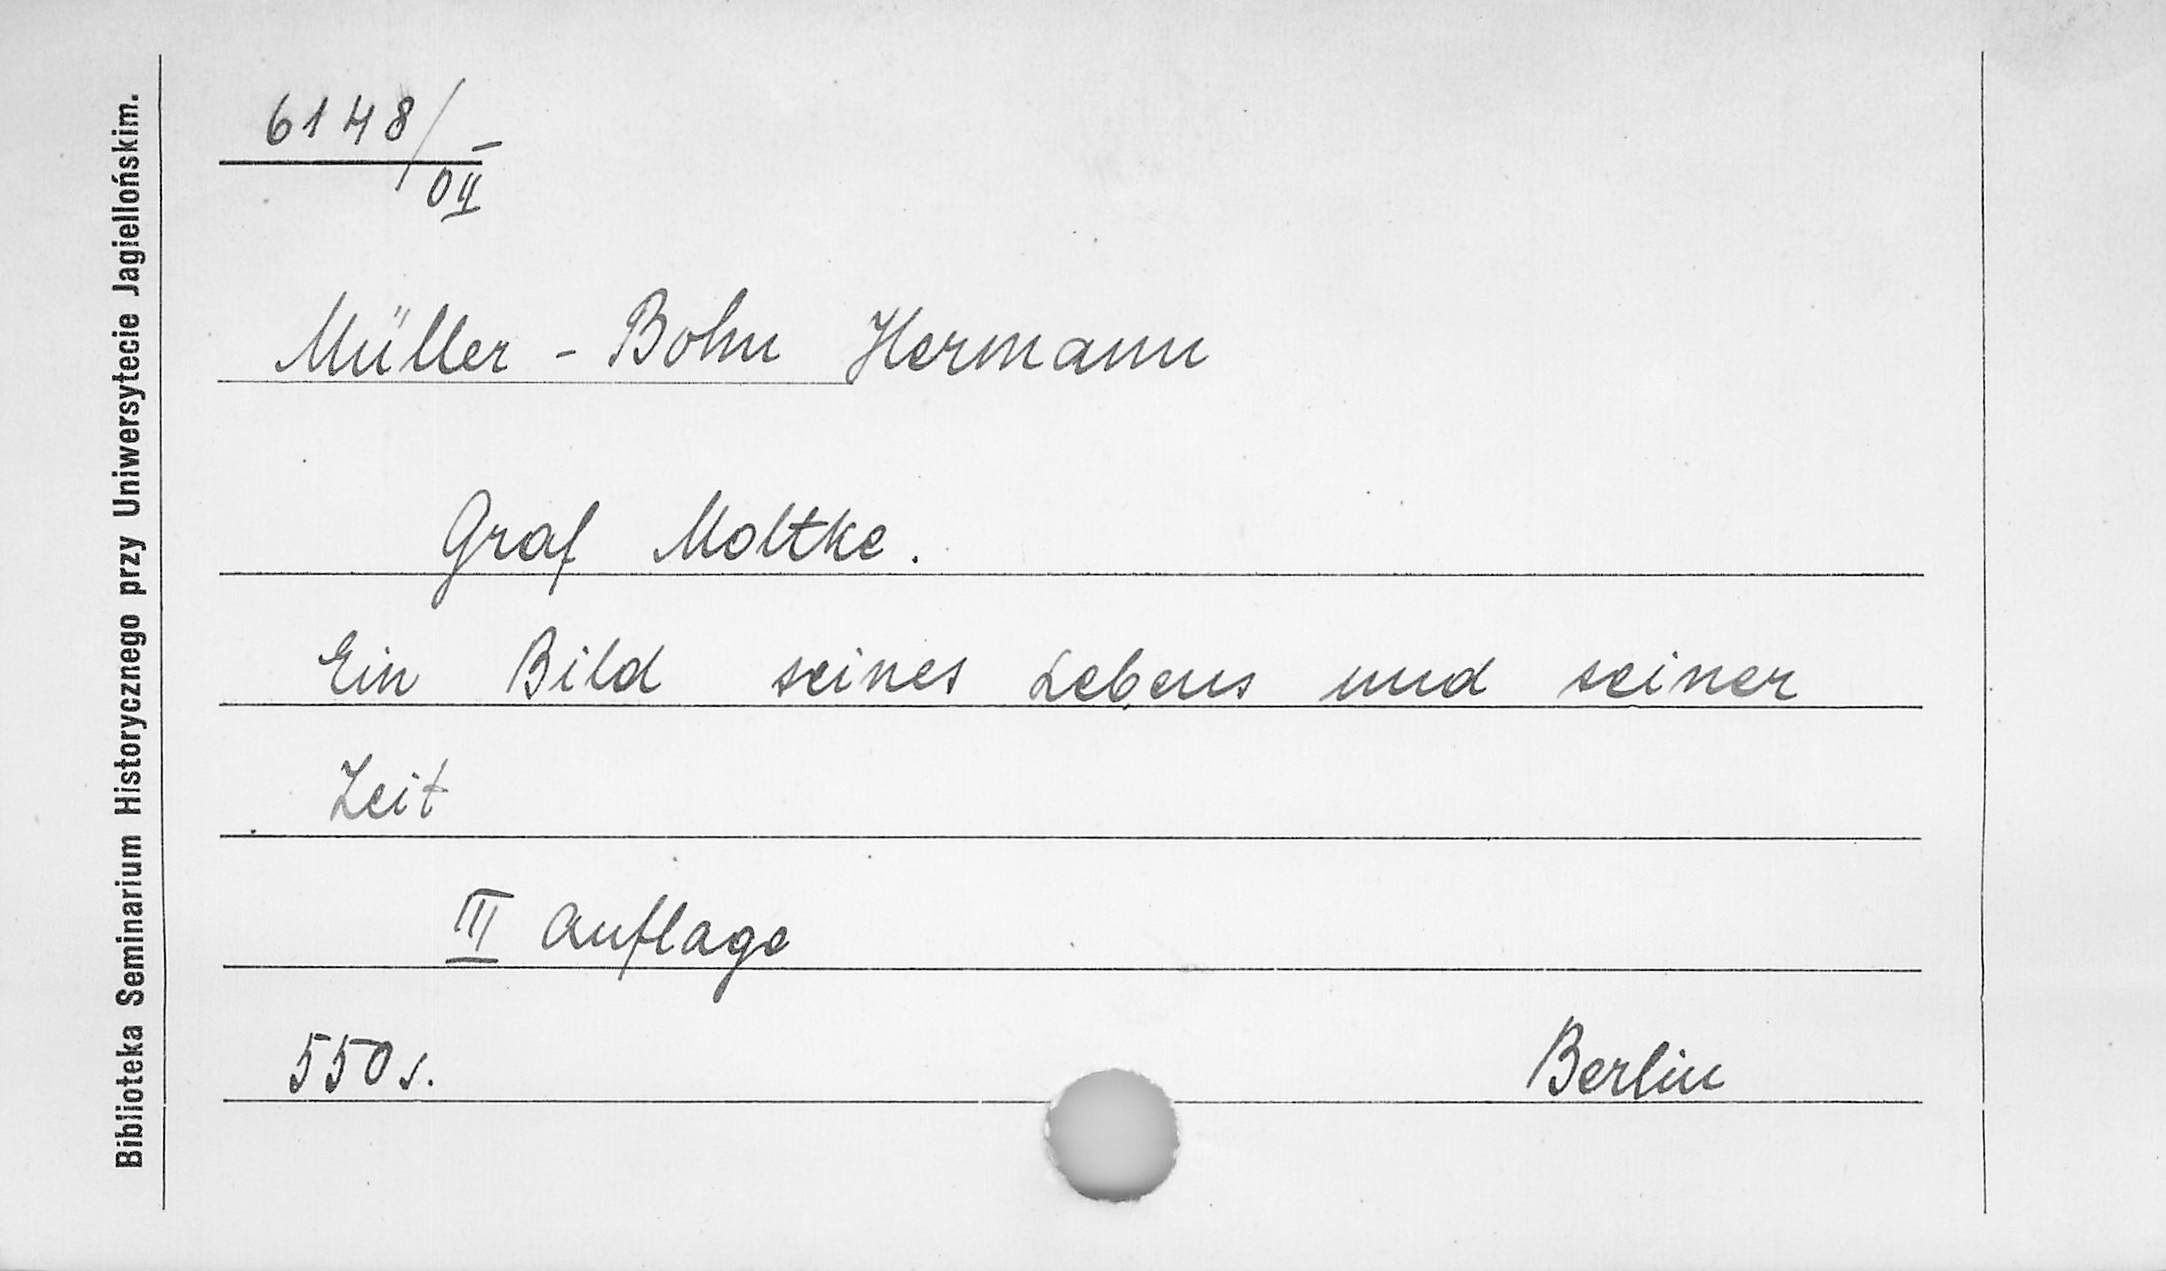 Biblioteka Seminarium Historycznego przy Uniwersytecie Jagiellońskim.
6148/
0II
Müller - Bohn Hermann
Graf Moltke.
Ein Bild seines Lebens und seiner
Zeit
III Auflage
550 s.
Berlin